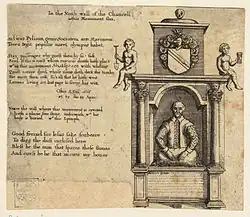 In the North wall of the Chancell
is this Monument fixt.
Iudicio Pilium, genio Socratem, arte Maronem
Terra tegit populus maeret olympus habet.
Stay passenger why goest thou by so fast
Read, if thou canst whom envious death hath plac't
within this monument Shakspeare with whome
Quick nature dyed, whose name doth deck the tombe
far more then cost, sith all that he hath writ
Leaves living art but page to serve his witt
Obiit A. Dni. 1616
æt. 53. die 23 Apr.
Neare the wall where this monument is erected
lyeth a plaine free stone, underneath wch his
body is buried, with this Epitaph.
Good frend for Iesus sake forbeare
To digg the dust inclosed here
Blest be the man that spares these stones
And curst be he that moves my bones